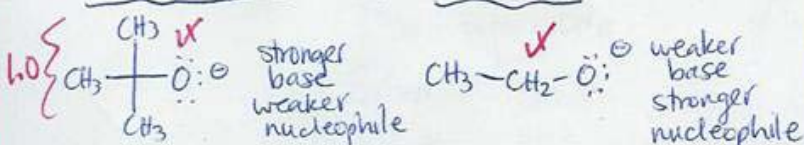 CH3
CH3 O: ⊖
CH3
stronger
base
weaker
nucleophile
CH3 CH2 O: ⊖
weaker
base
stronger
nucleophile